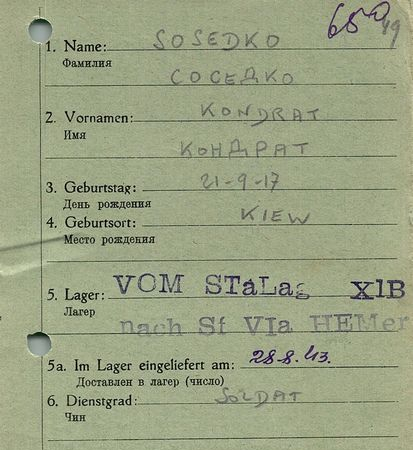 650
49
1. Name: SOSEDKO
Фамилия
СОСЕДКО
2. Vornamen: KONDRAT
Имя
КОНДРАТ
3. Geburtstag: 21-9-17
День рождения
4. Geburtsort: KIEW
Место рождения
5. Lager: VOM STaLag XIB
Лагер
nach St VIa HEMer
5a. Im Lager eingeliefert am: 28.8.43.
Доставлен в лагер (число)
6. Dienstgrad: SOLDAT
Чин